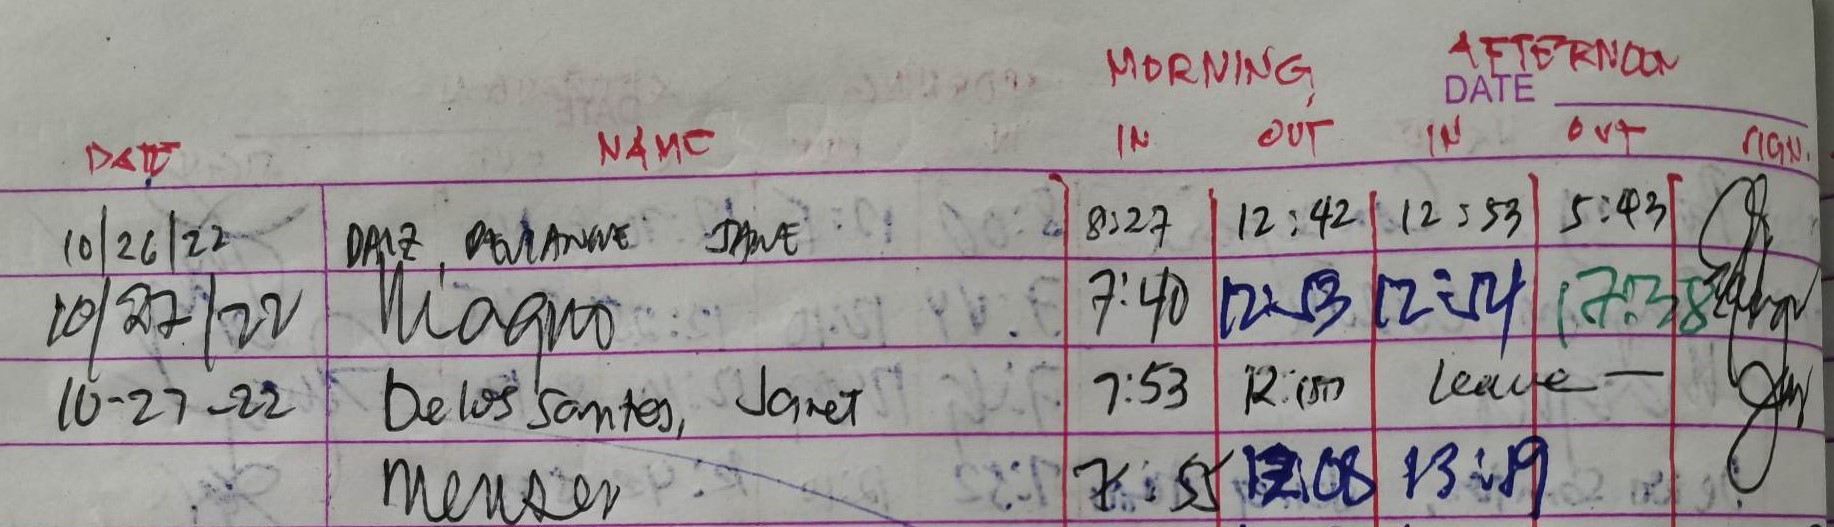 MORNING AFTERNOON
DATE
DATE NAME IN OUT IN OUT SIGN.
10/26/22 JANE 8:27 12:42 12:53 5:43
10/27/22 7:40 12:53 12:54 17:38
10-27-22 Delos Santos, Janet 7:53 12:00 leave —
7:55 12:08 13:19